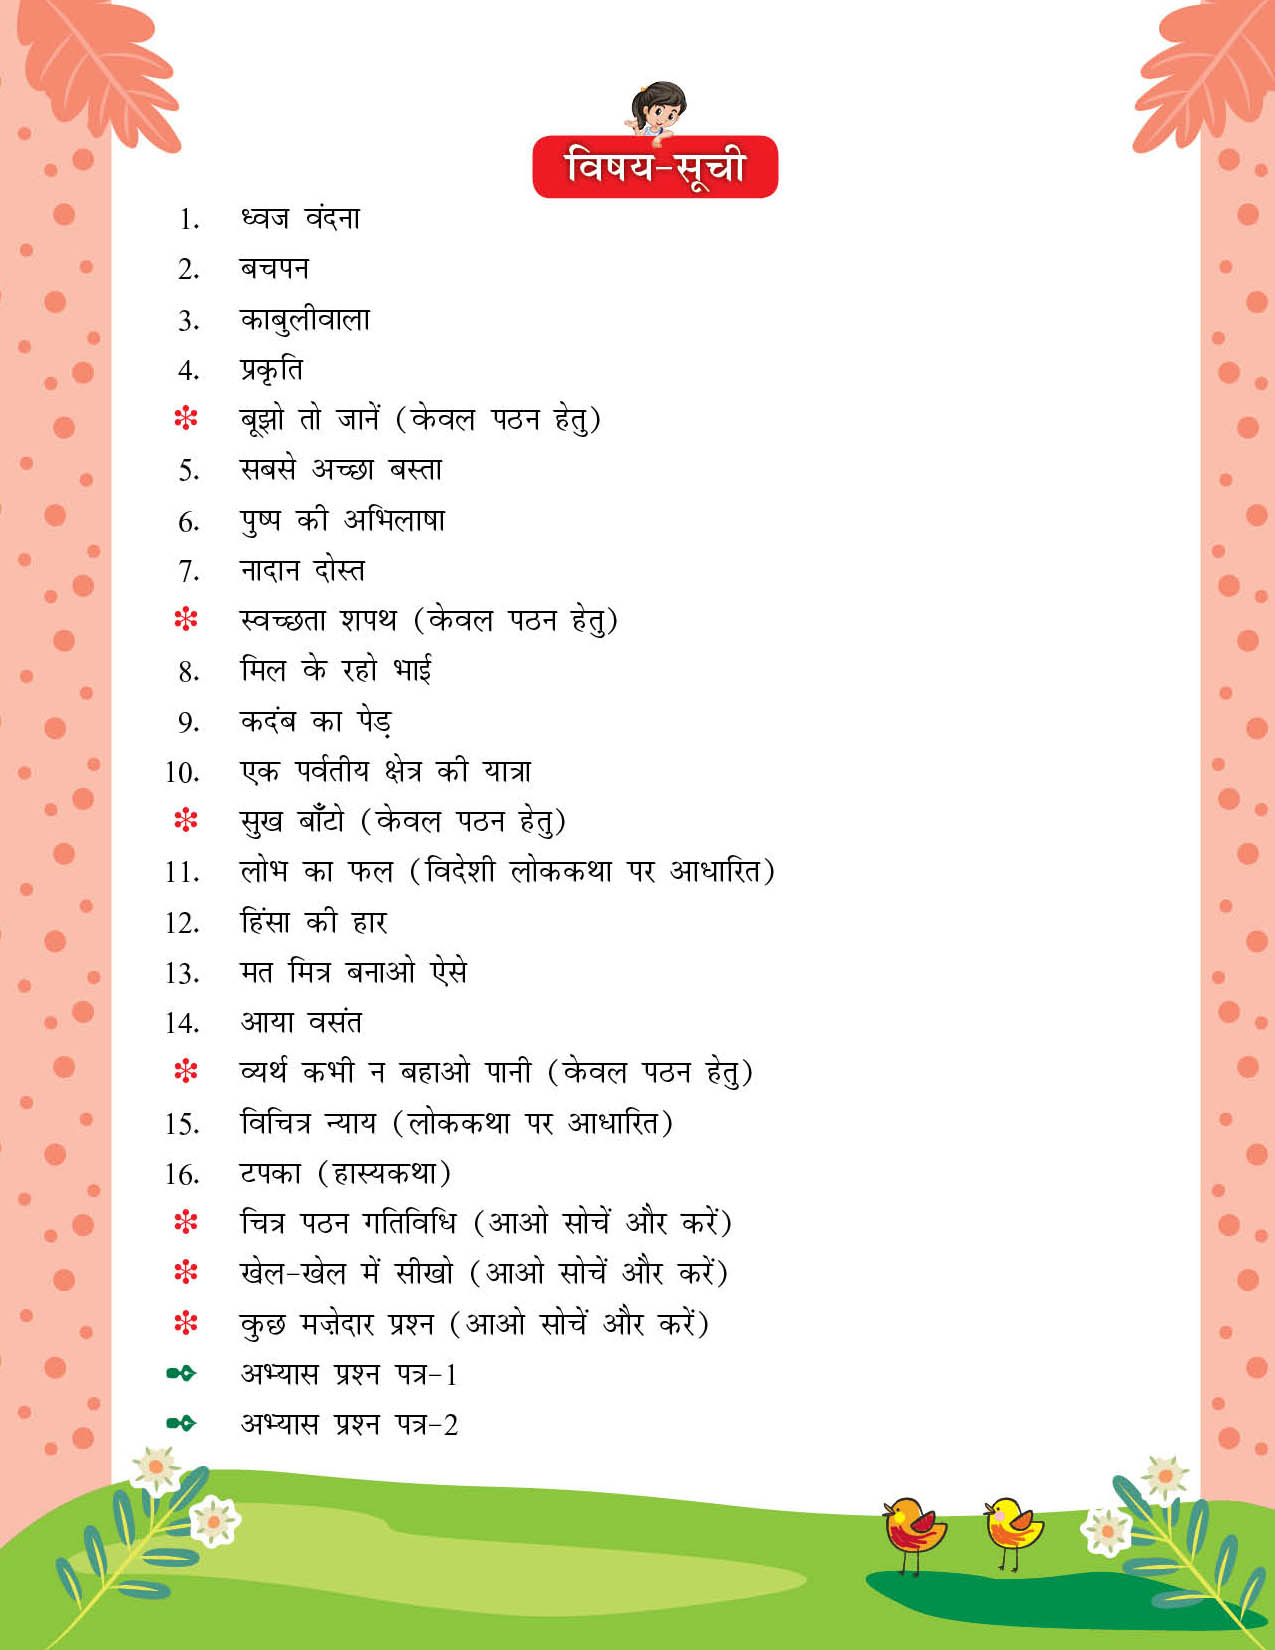 विषय-सूची
1. ध्वज वंदना
2. बचपन
3. काबुलीवाला
4. प्रकृति
❇ बूझो तो जानें (केवल पठन हेतु)
5. सबसे अच्छा बस्ता
6. पुष्प की अभिलाषा
7. नादान दोस्त
❇ स्वच्छता शपथ (केवल पठन हेतु)
8. मिल के रहो भाई
9. कदंब का पेड़
10. एक पर्वतीय क्षेत्र की यात्रा
❇ सुख बाँटो (केवल पठन हेतु)
11. लोभ का फल (विदेशी लोककथा पर आधारित)
12. हिंसा की हार
13. मत मित्र बनाओ ऐसे
14. आया वसंत
❇ व्यर्थ कभी न बहाओ पानी (केवल पठन हेतु)
15. विचित्र न्याय (लोककथा पर आधारित)
16. टपका (हास्यकथा)
❇ चित्र पठन गतिविधि (आओ सोचें और करें)
❇ खेल-खेल में सीखो (आओ सोचें और करें)
❇ कुछ मज़ेदार प्रश्न (आओ सोचें और करें)
✒ अभ्यास प्रश्न पत्र-1
✒ अभ्यास प्रश्न पत्र-2